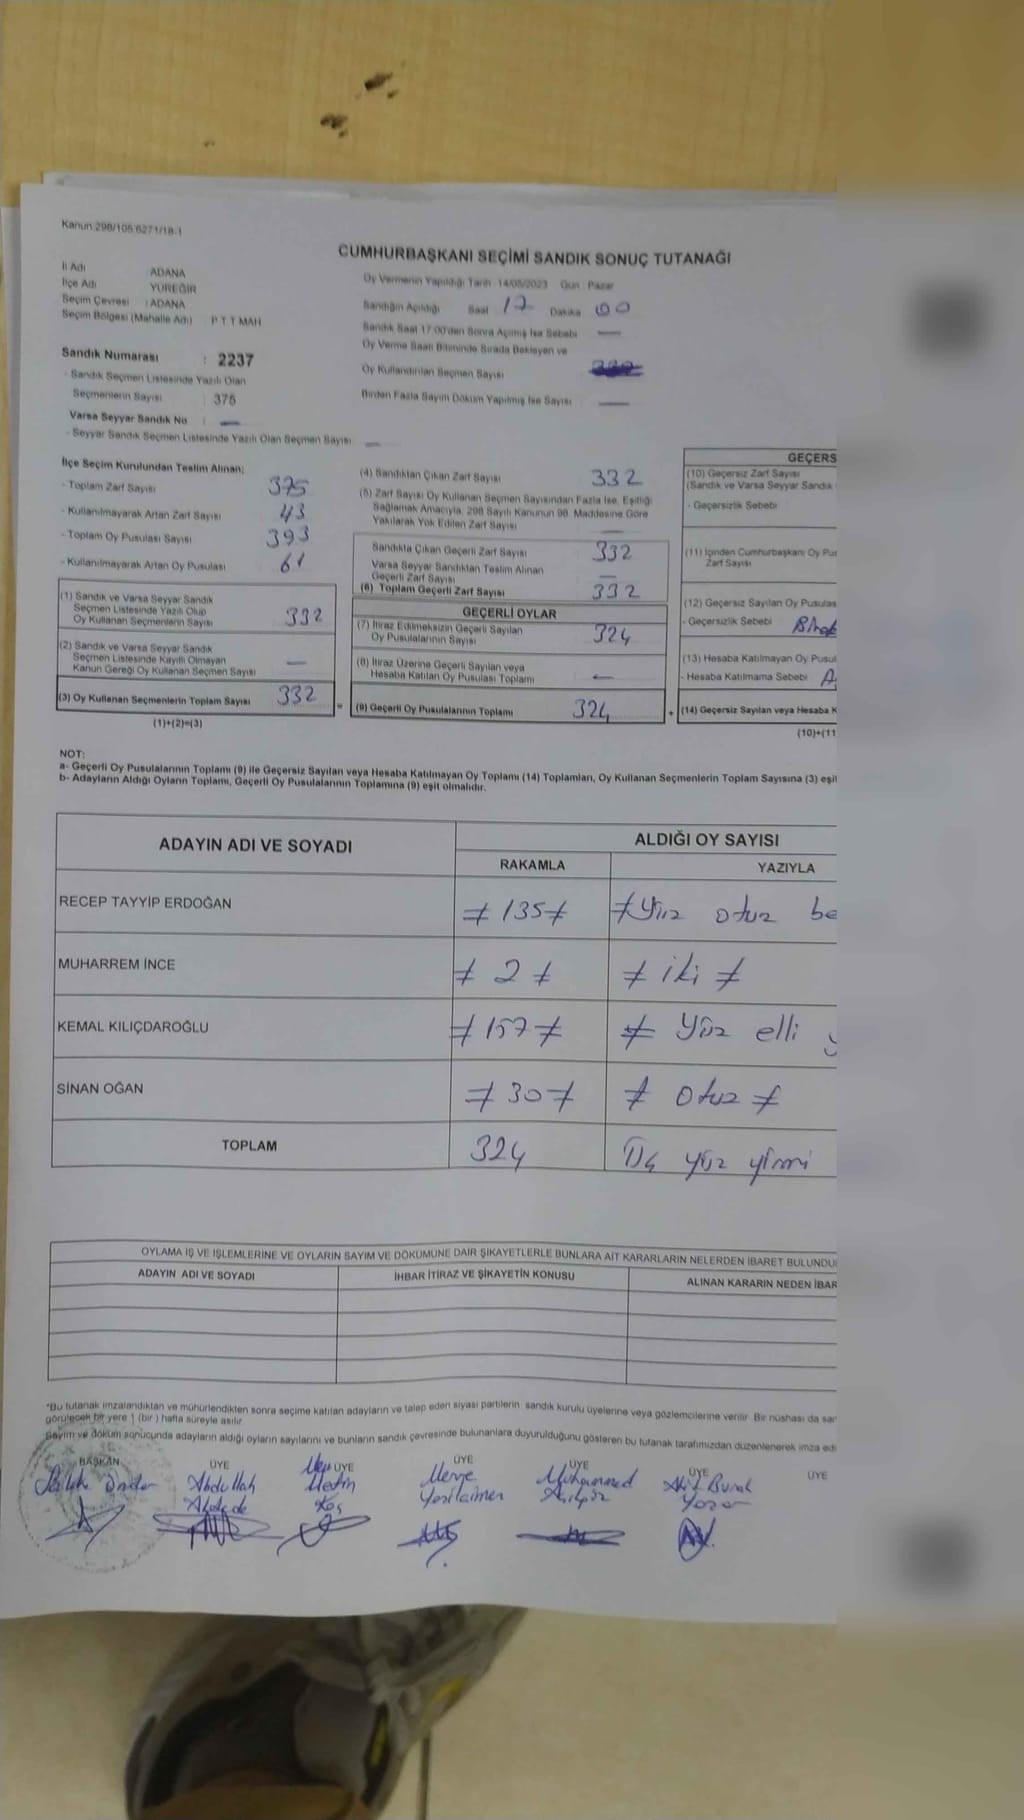 Kanun:298/105:6271/18-1
CUMHURBAŞKANI SEÇİMİ SANDIK SONUÇ TUTANAĞI
İl Adı ADANA
İlçe Adı YÜREĞİR
Seçim Çevresi : ADANA
Seçim Bölgesi (Mahalle Adı) P T T MAH
Oy Vermenin Yapıldığı Tarih 14/05/2023 Gün : Pazar
Sandığın Açıldığı Saat 17 Dakika 00
Sandık Saat 17:00'den Sonra Açılmış İse Sebebi —
Oy Verme Saati Bitiminde Sırada Bekleyen ve
Oy Kullandırılan Seçmen Sayısı
Birden Fazla Sayım Döküm Yapılmış İse Sayısı —
Sandık Numarası : 2237
- Sandık Seçmen Listesinde Yazılı Olan
Seçmenlerin Sayısı : 375
Varsa Seyyar Sandık No : —
- Seyyar Sandık Seçmen Listesinde Yazılı Olan Seçmen Sayısı —
İlçe Seçim Kurulundan Teslim Alınan;
- Toplam Zarf Sayısı 375
- Kullanılmayarak Artan Zarf Sayısı 43
- Toplam Oy Pusulası Sayısı 393
- Kullanılmayarak Artan Oy Pusulası 61
(1) Sandık ve Varsa Seyyar Sandık
Seçmen Listesinde Yazılı Olup
Oy Kullanan Seçmenlerin Sayısı 332
(2) Sandık ve Varsa Seyyar Sandık
Seçmen Listesinde Kayıtlı Olmayan
Kanun Gereği Oy Kullanan Seçmen Sayısı —
(3) Oy Kullanan Seçmenlerin Toplam Sayısı 332
(1)+(2)=(3)
(4) Sandıktan Çıkan Zarf Sayısı 332
(5) Zarf Sayısı Oy Kullanan Seçmen Sayısından Fazla İse, Eşitliği
Sağlamak Amacıyla, 298 Sayılı Kanunun 98. Maddesine Göre
Yakılarak Yok Edilen Zarf Sayısı —
Sandıkta Çıkan Geçerli Zarf Sayısı 332
Varsa Seyyar Sandıktan Teslim Alınan
Geçerli Zarf Sayısı —
(6) Toplam Geçerli Zarf Sayısı 332
GEÇERLİ OYLAR
(7) İtiraz Edilmeksizin Geçerli Sayılan
Oy Pusulalarının Sayısı 324
(8) İtiraz Üzerine Geçerli Sayılan veya
Hesaba Katılan Oy Pusulası Toplamı —
= (9) Geçerli Oy Pusulalarının Toplamı 324
GEÇERS
(10) Geçersiz Zarf Sayısı
(Sandık ve Varsa Seyyar Sandık
- Geçersizlik Sebebi
(11) İçinden Cumhurbaşkanı Oy Pus
Zarf Sayısı
(12) Geçersiz Sayılan Oy Pusulas
- Geçersizlik Sebebi
(13) Hesaba Katılmayan Oy Pusul
- Hesaba Katılmama Sebebi
+ (14) Geçersiz Sayılan veya Hesaba K
(10)+(11
NOT:
a- Geçerli Oy Pusulalarının Toplamı (9) ile Geçersiz Sayılan veya Hesaba Katılmayan Oy Toplamı (14) Toplamları, Oy Kullanan Seçmenlerin Toplam Sayısına (3) eşit
b- Adayların Aldığı Oyların Toplamı, Geçerli Oy Pusulalarının Toplamına (9) eşit olmalıdır.
ADAYIN ADI VE SOYADI ALDIĞI OY SAYISI
RAKAMLA YAZIYLA
RECEP TAYYİP ERDOĞAN ≠ 135 ≠ ≠ Yüz otuz be
MUHARREM İNCE ≠ 2 ≠ ≠ iki ≠
KEMAL KILIÇDAROĞLU ≠ 157 ≠ ≠ Yüz elli y
SİNAN OĞAN ≠ 30 ≠ ≠ Otuz ≠
TOPLAM 324 Üç yüz yirmi
OYLAMA İŞ VE İŞLEMLERİNE VE OYLARIN SAYIM VE DÖKÜMÜNE DAİR ŞİKAYETLERLE BUNLARA AİT KARARLARIN NELERDEN İBARET BULUNDU
ADAYIN ADI VE SOYADI İHBAR İTİRAZ VE ŞİKAYETİN KONUSU ALINAN KARARIN NEDEN İBAR
*Bu tutanak imzalandıktan ve mühürlendikten sonra seçime katılan adayların ve talep eden siyasi partilerin sandık kurulu üyelerine veya gözlemcilerine verilir. Bir nüshası da san
görülecek bir yere 1 (bir) hafta süreyle asılır.
Sayım ve döküm sonucunda adayların aldığı oyların sayılarını ve bunların sandık çevresinde bulunanlara duyurulduğunu gösteren bu tutanak tarafımızdan düzenlenerek imza edi
BAŞKAN ÜYE ÜYE ÜYE ÜYE ÜYE ÜYE
Önder Abdullah Metin Merve Muhammed Akif Burak
Koç Yeşilçimen Açıkgöz